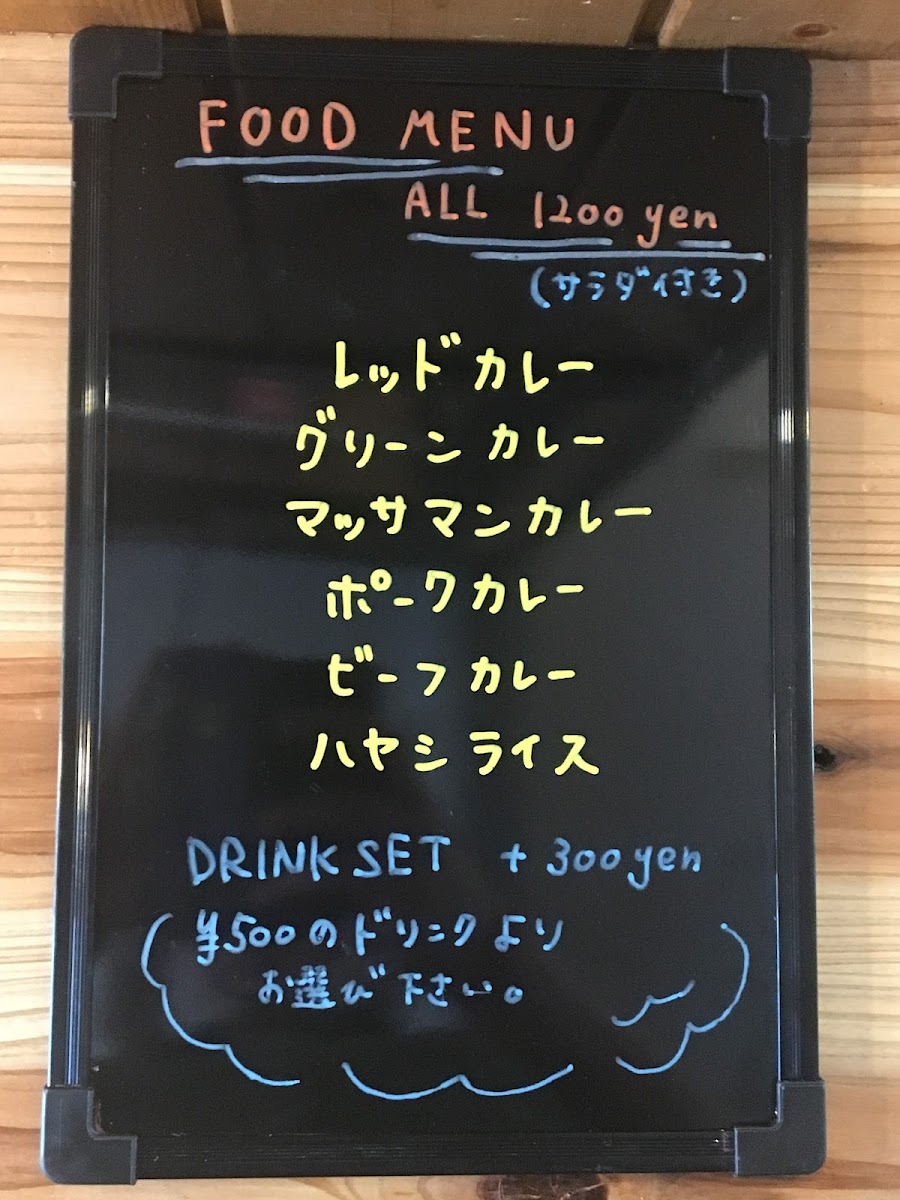 FOOD MENU
ALL 1200 yen
(サラダ付き)
レッドカレー
グリーンカレー
マッサマンカレー
ポークカレー
ビーフカレー
ハヤシライス
DRINK SET + 300 yen
¥500のドリンクより
お選び下さい。